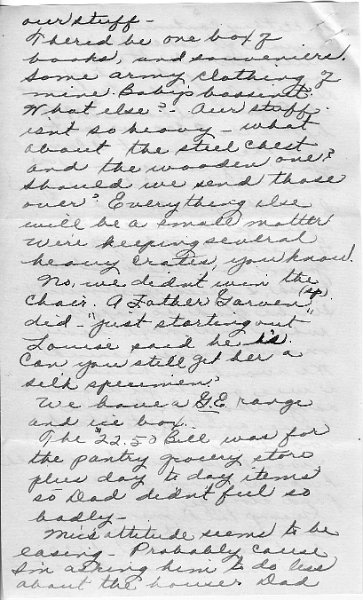 our stuff -
There'd be one box of
books, and souveniers.
Some army clothing of
mine. Baby's bassinet.
What else? - Our stuff
isn't so heavy - what
about the steel chest
and the wooden one?
Should we send those
over? Everything else
will be a small matter
We're keeping several
heavy crates, you know.
No, we didn't win the
chair. A Father Garven (sp)
did - "just starting out"
Louise said he is.
Can you still get her a
silk specimen?
We have a G.E. range
and ice box.
The "22.50 Bill was for
the pantry grocery store
plus day to day items
so Dad didn't feel so
badly -
Mic's attitude seems to be
easing - Probably cause
I'm asking him to do less
about the house. Dad